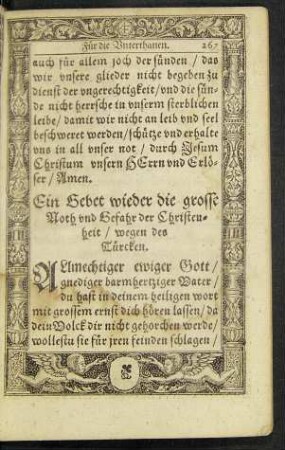 Für die Vnterthanen. 267
auch für allem joch der sünden / das
wir vnsere glieder nicht begeben zu
dienst der vngerechtigkeit / vnd die sün-
de nicht herrsche in vnserm sterblichen
leibe / damit wir nicht an leib vnd seel
beschweret werden / schütze vnd erhalte
vns in all vnser not / durch Jesum
Christum vnsern HErrn vnd Erlö-
ser / Amen.
Ein Gebet wieder die grosse
Noth vnd Gefahr der Christen-
heit / wegen des
Türcken.
ALlmechtiger ewiger Gott /
gnediger barmhertziger Vater /
du hast in deinem heiligen wort
mit grossem ernst dich hören lassen / da
dein Volck dir nicht gehorchen werde /
wollestu sie für jren feinden schlagen /